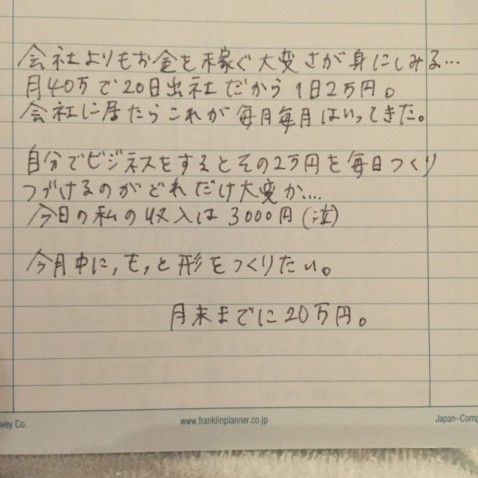 会社よりもお金を稼ぐ大変さが身にしみる…
月40万で20日出社だから1日2万円。
会社に居たらこれが毎月毎月はいってきた。
自分でビジネスをするとその2万円を毎日つくり
つづけるのがどれだけ大変か….
今日の私の収入は3000円(泣)
今月中に,もっと形をつくりたい。
月末までに20万円。
vey Co.
www.franklinplanner.co.jp
Japan–Comp